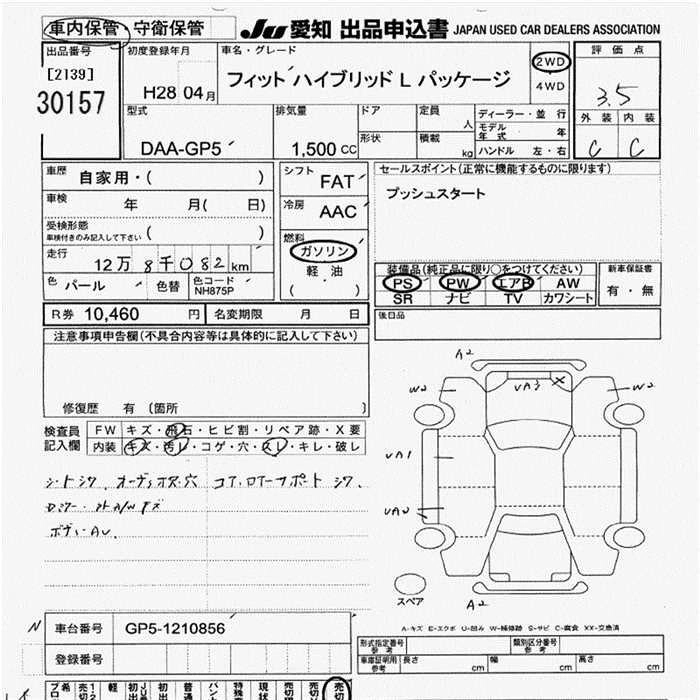 車内保管 ・ 守衛保管 JU 愛知 出品申込書 JAPAN USED CAR DEALERS ASSOCIATION
出品番号 初度登録年月 車名・グレード 評価点
[2139] 2WD
30157 H28 04月 フィット ハイブリッド L パッケージ 4WD 3.5
型式 排気量 ドア 定員 人 ディーラー・並行 外装 内装
DAA-GP5 1,500 CC 形状 積載 kg モデル年式 年 C C
ハンドル 左・右
車歴 自家用・( ) シフト FAT セールスポイント(正常に機能するものに限ります)
車検 年 月( 日) 冷房 AAC プッシュスタート
受検形態
車検付きのみ記入して下さい ( )
走行 12万 8千082 km 燃料 ガソリン
軽油
( ・ )
装備品(純正品に限り○をつけてください) 新車保証書
色 パール 色替 色コード NH875P PS PW エアB AW 有・無
SR ナビ TV カワシート
R券 10,460 円 名変期限 月 日 後日品
注意事項申告欄(不具合内容等は具体的に記入して下さい)
修復歴 有 (箇所 )
A2
W2 UA3 X W2
UA1
UA2
スペア A2
検査員記入欄 FW キズ・飛石・ヒビ割・リペア跡・X要
内装 キズ・汚レ・コゲ・穴・スレ・キレ・破レ
シートシワ
ボディーAU.
A-キズ E-エクボ U-凹み W-補修跡 S-サビ C-腐食 XX-交換済
N 車台番号 GP5-1210856
登録番号
形式指定番号 参考 類別区分番号 参考
車庫証明用 参考 長さ cm 幅 cm 高さ cm